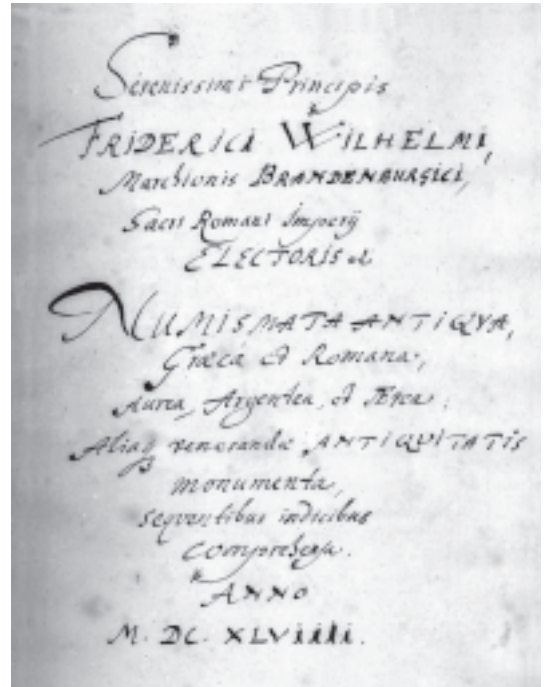 Serenissimi Principis
FRIDERICI WILHELMI,
Marchionis BRANDENBURGICI,
Sacri Romani Imperij
ELECTORIS et
NUMISMATA ANTIQVA,
Græca et Romana,
Aurea, Argentea, et Ærea:
Aliaq venerandæ ANTIQVITATIS
monumenta,
seqventibus indicibus
comprehensa.
ANNO
M. DC. XLViiii.